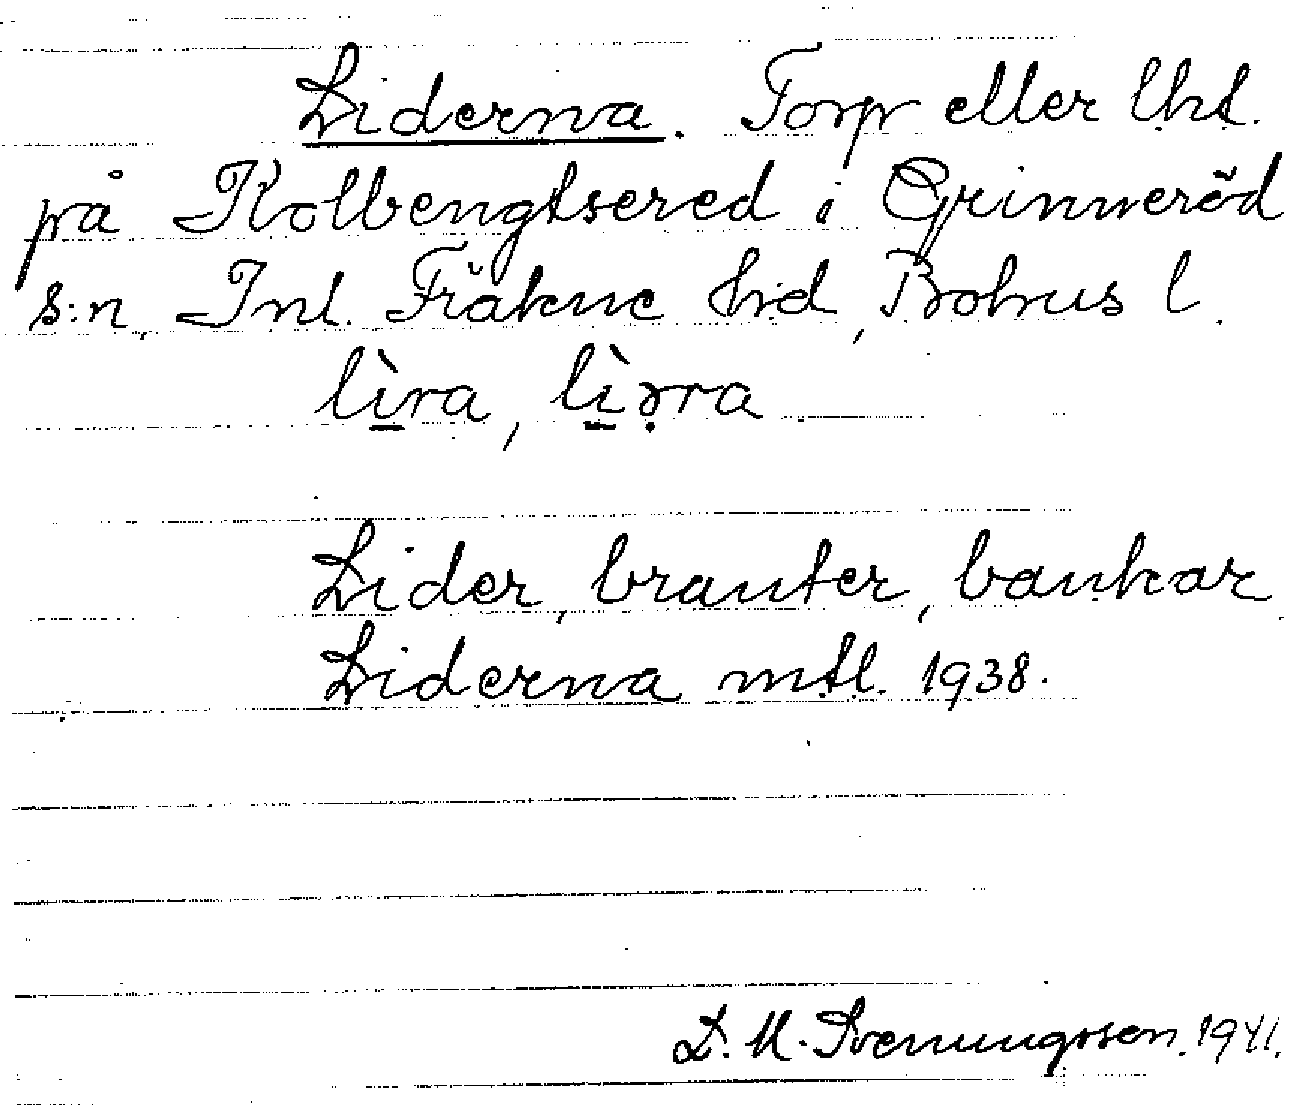 Liderna. Torp eller lht.
på Kolbengtsered i Grinneröd
s:n, Inl. Fräkne hd, Bohus l.
lìra, lìərra
Lider, branter, bankar
Liderna mtl. 1938.
D. M. Svenungsson. 1941.